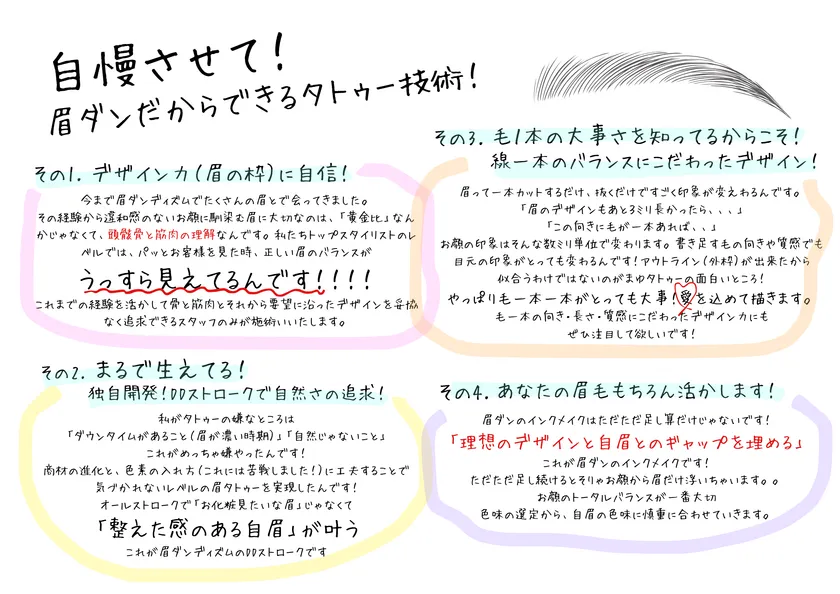 自慢させて！
眉ダンだからできるタトゥー技術！
その1. デザイン力(眉の枠)に自信！
今まで眉ダンディズムでたくさんの眉とで会ってきました。
その経験から違和感のないお顔に馴染む眉に大切なのは、「黄金比」なん
かじゃなくて、頭骸骨と筋肉の理解なんです。私たちトップスタイリストのレ
ベルでは、パッとお客様を見た時、正しい眉のバランスが
うっすら見えてるんです！！！！
これまでの経験を活かして骨と筋肉とそれから要望に沿ったデザインを妥協
なく追求できるスタッフのみが施術いいたします。
その2. まるで生えてる！
独自開発！DDストロークで自然さの追求！
私がタトゥーの嫌なところは
「ダウンタイムがあること(眉が濃い時期)」「自然じゃないこと」
これがめっちゃ嫌やったんです！
商材の進化と、色素の入れ方(これには苦戦しました！)に工夫することで
気づかれないレベルの眉タトゥーを実現したんです！
オールストロークで「お化粧見たいな眉」じゃなくて
「整えた感のある自眉」が叶う
これが眉ダンディズムのDDストロークです
その3. 毛1本の大事さを知ってるからこそ！
線一本のバランスにこだわったデザイン！
眉って一本カットするだけ、抜くだけですごく印象が変えわるんです。
「眉のデザインもあと3ミリ長かったら、、、」
「この向きにもが一本あれば、、」
お顔の印象はそんな数ミリ単位で変わります。書き足すもの向きや質感でも
目元の印象がとっても変わるんです！アウトライン(外枠)が出来たから
似合うわけではないのがまゆタトゥーの面白いところ！
やっぱり毛一本一本がとっても大事！愛を込めて描きます。
毛一本の向き・長さ・質感にこだわったデザイン力にも
ぜひ注目して欲しいです！
その4. あなたの眉毛ももちろん活かします！
眉ダンのインクメイクはただただ足し算だけじゃないです！
「理想のデザインと自眉とのギャップを埋める」
これが眉ダンのインクメイクです！
ただただ足し続けるとそりゃお顔から眉だけ浮いちゃいます。。
お顔のトータルバランスが一番大切
色味の選定から、自眉の色味に慎重に合わせていきます。